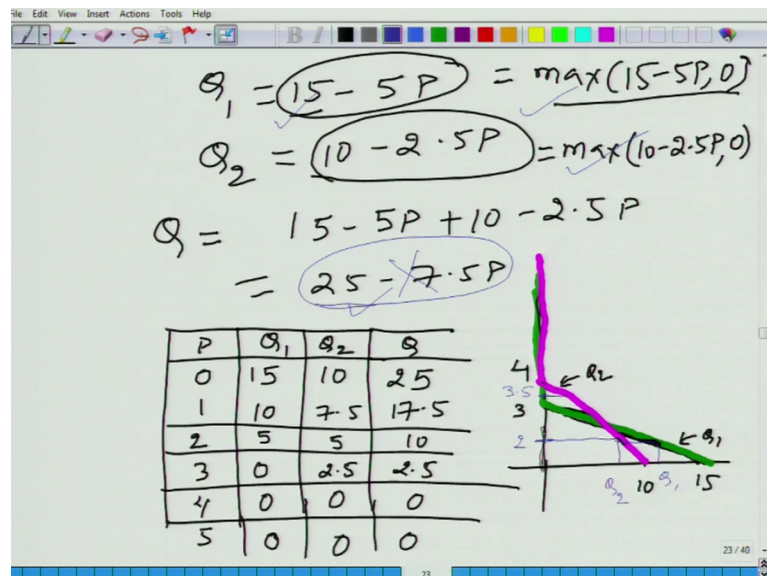 File Edit View Insert Actions Tools Help
B I
Q₁ = 15 - 5P = max(15-5P,0)
Q₂ = 10 - 2.5P = max(10-2.5P,0)
Q = 15 - 5P + 10 - 2.5P
= 25 - 7.5P
P Q₁ Q₂ Q
0 15 10 25
1 10 7.5 17.5
2 5 5 10
3 0 2.5 2.5
4 0 0 0
5 0 0 0
4 ← Q2
3.5
3
2 ← Q₁
Q₂ 10 Q₁ 15
23 / 40
23